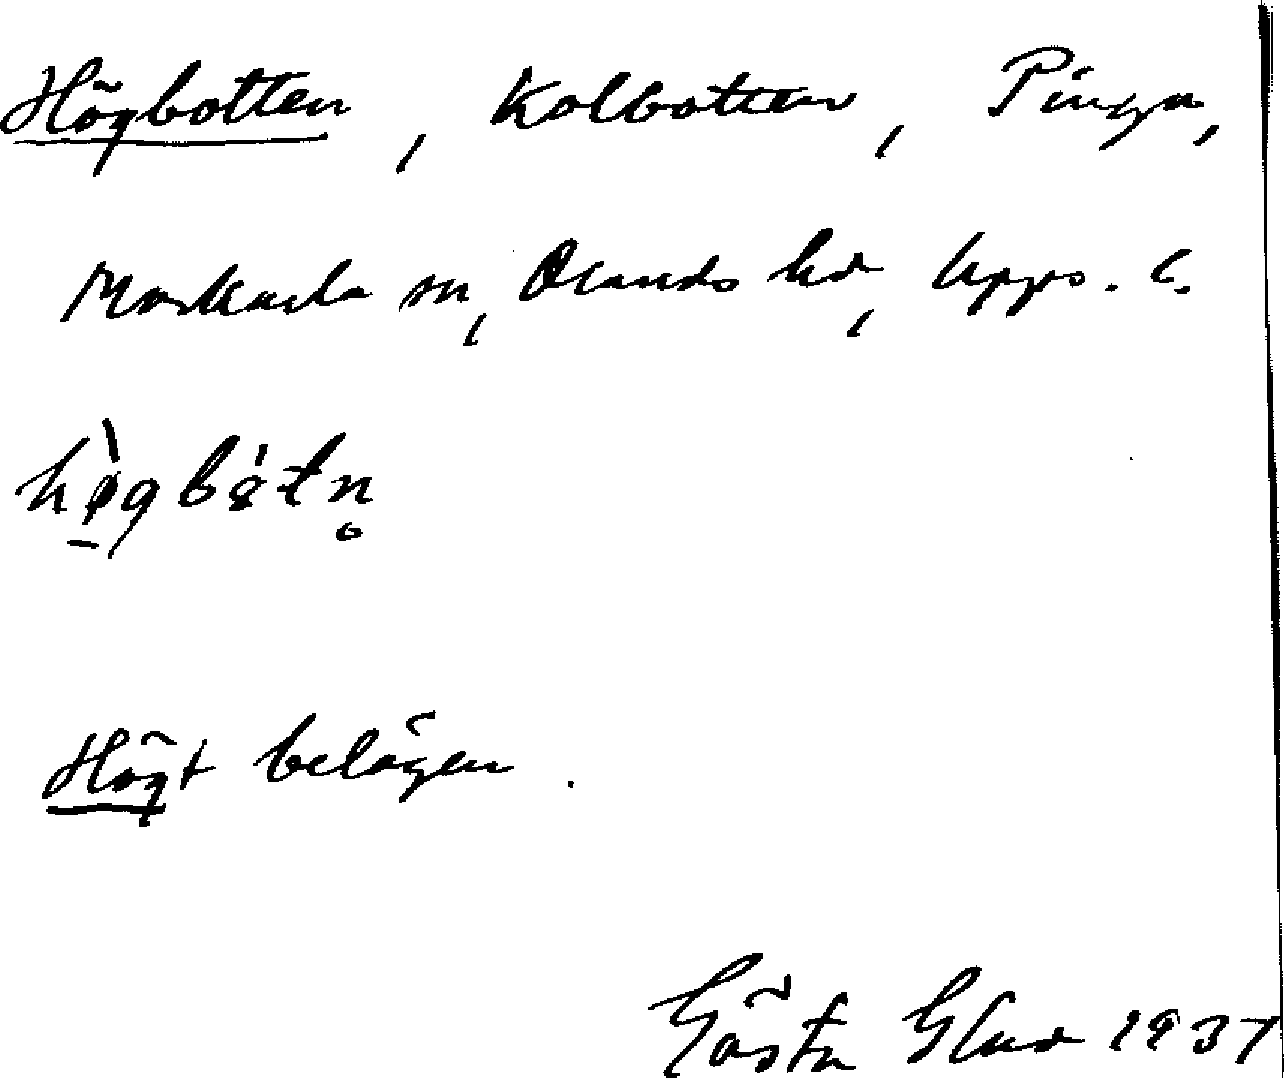 Högbotten, Kolbotten, Pinga,
Morkarla sn, Olands hd, Upps. l.
hø̱̀gbȯtn̥
Högt belägen.
Gösta Glad 1937